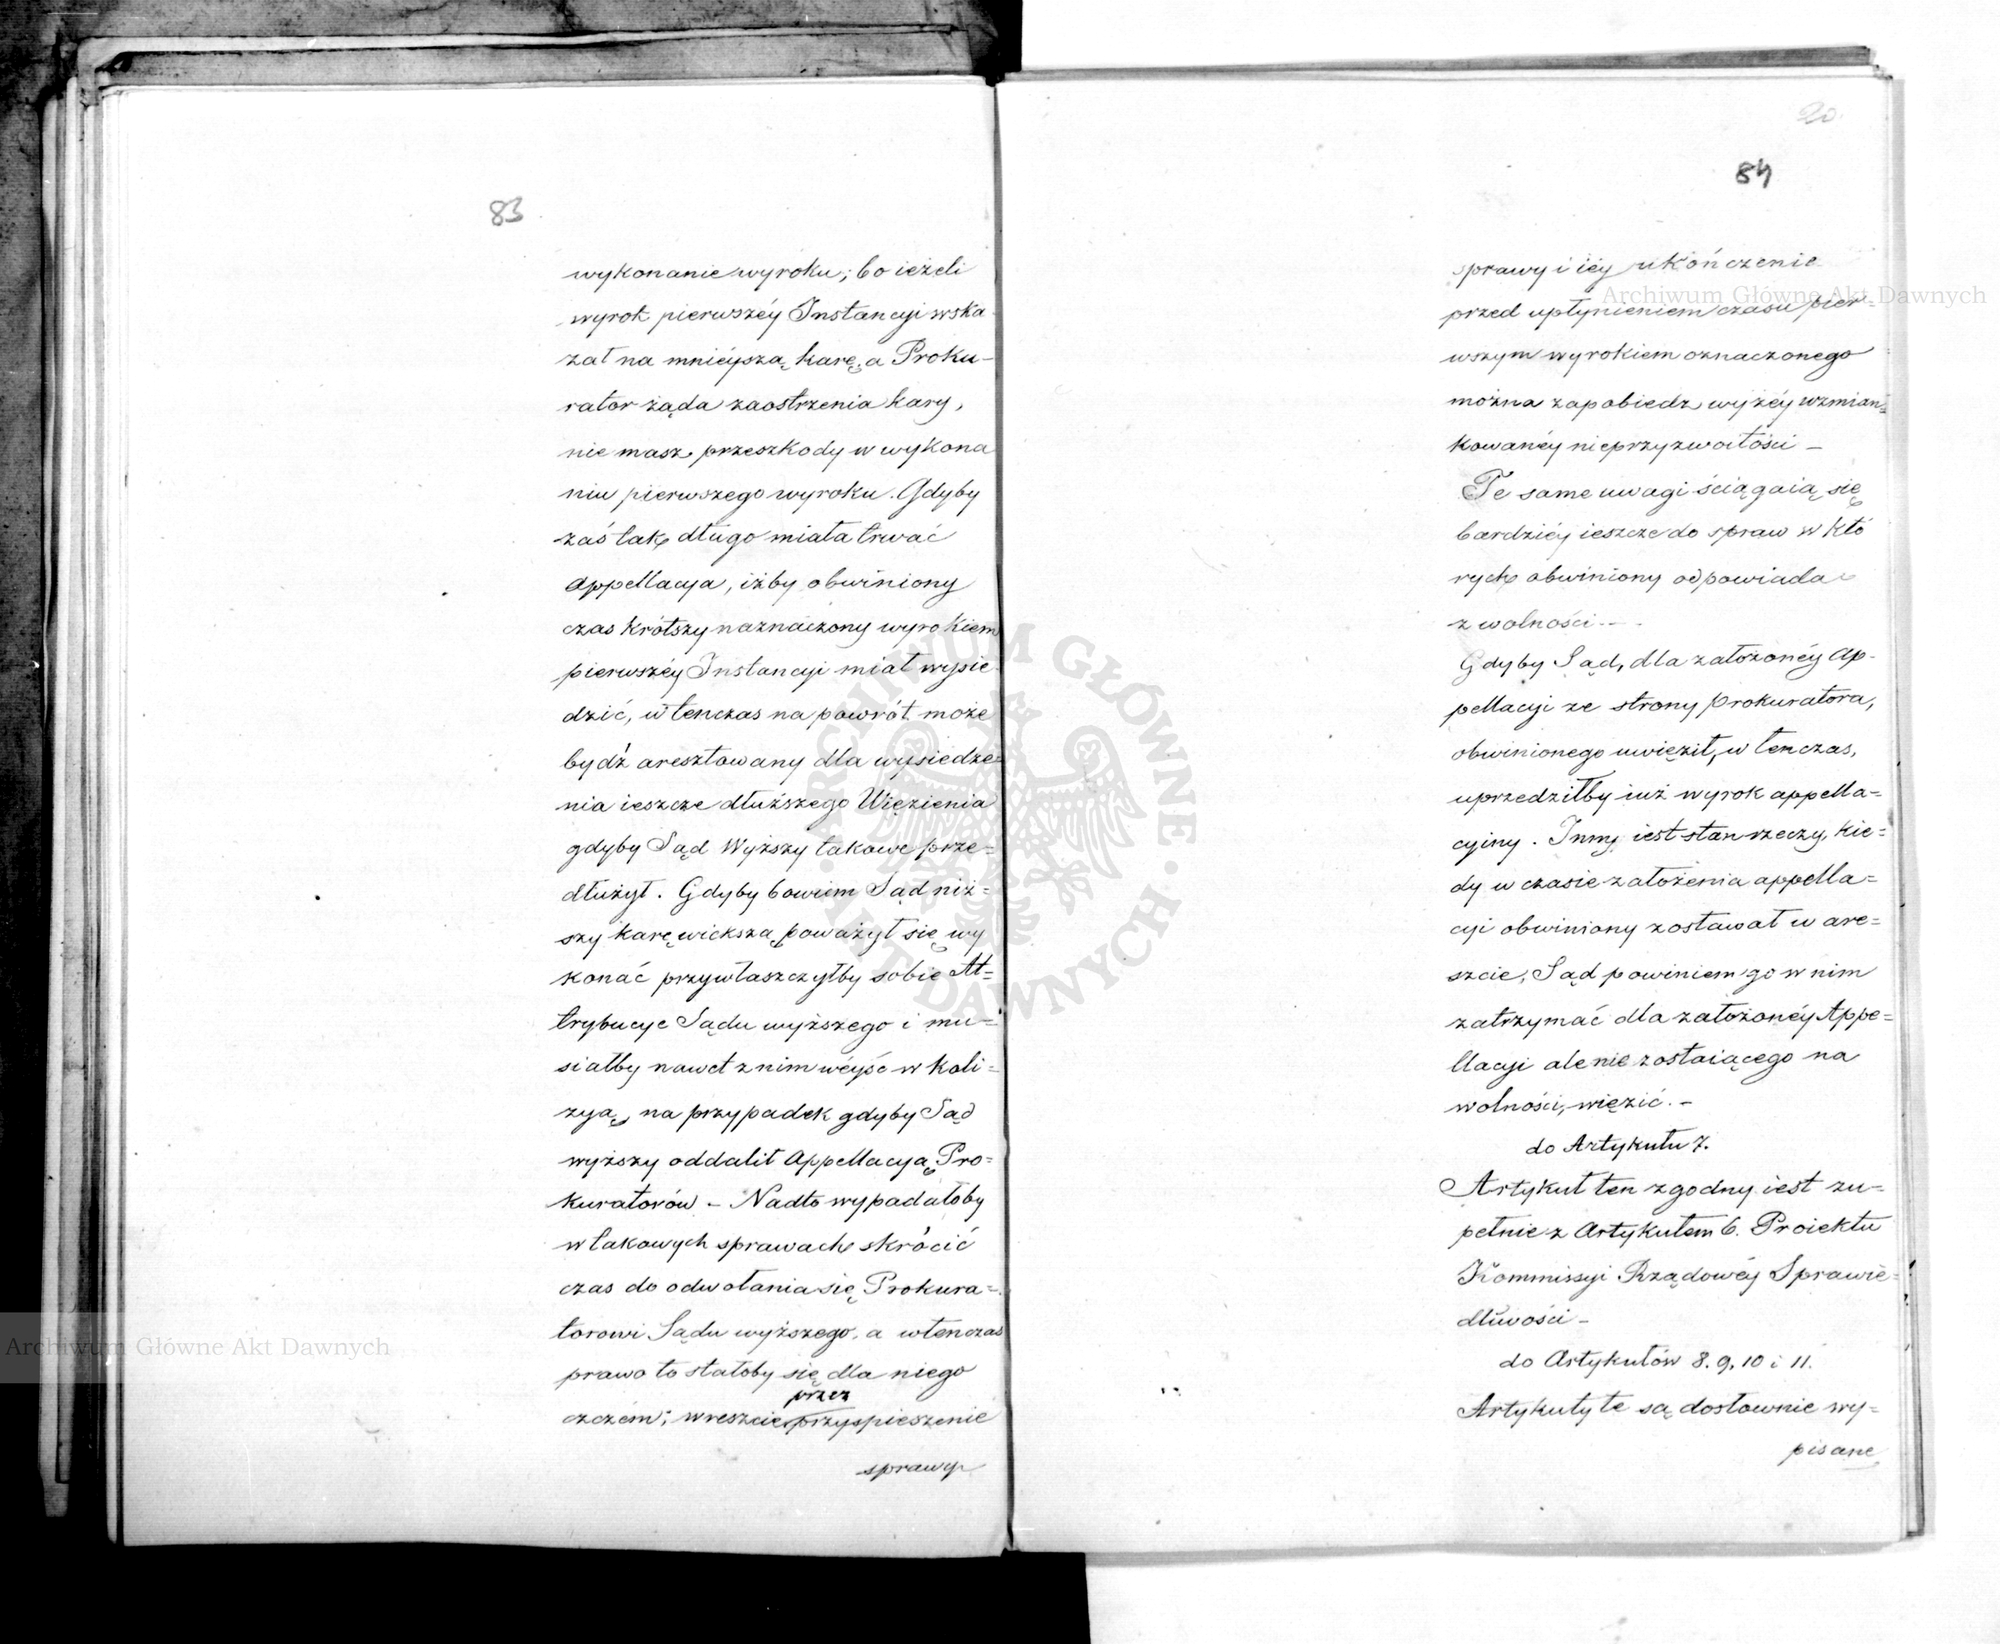 83
wykonanie wyroku; bo ieżeli
wyrok pierwszéy Instancyi wska
zał na mnieyszą karę, a Proku-
rator żąda zaostrzenia kary,
nie masz przeszkody w wykona
niu pierwszego wyroku. Gdyby
zaś tak długo miała trwać
Appellacya, iżby obwiniony
czas krótszy naznaczony wyrokiem
pierwszéy Instancyi miał wysie
dzić, wtenczas na powrót może
bydź aresztowany dla wysiedze
nia ieszcze dłuższego Więzienia
gdyby Sąd Wyższy takowe prze=
dłużył. Gdyby bowiem Sąd niż=
szy karę wieksza poważył się wy
konać przywłaszczyłby sobie At=
trybucye Sądu wyższego i mu=
siałby nawet z nim wéyść w koli=
zyą, na przypadek gdyby Sąd
wyższy oddalił Appellacyą Pro=
kuratorów - Nadto wypadałoby
w takowych sprawach skrócić
czas do odwołania się Prokura=
torowi Sądu wyższego, a wtenczas
prawo to stałoby się dla niego
przez
czczém; wreszcie przyspieszenie
sprawy
20.
84
sprawy i iéy ukończenie
przed upłynieniem czasu pier-
wszym wyrokiem oznaczonego
można zapobiedz wyżéy wzmian=
kowanéy nieprzyzwoitości -
Te same uwagi ściągaią się
bardziéy ieszcze do spraw w któ
rych obwiniony odpowiada
z wolności. -
Gdyby Sąd, dla założonéy Ap-
pellacyi ze strony Prokuratora,
obwinionego uwięził, w tenczas,
uprzedziłby iuż wyrok appella=
cyiny. Inny iest stan rzeczy, kie=
dy w czasie założenia appella=
cyi obwiniony zostawał w are=
szcie, Sąd powiniem go w nim
zatrzymać dla założonéy Appe=
llacyi ale nie zostaiącego na
wolności, więzić. -
do Artykułu 7.
Artykuł ten zgodny iest zu=
pełnie z Artykułem 6. Proiektu
Kommissyi Rządowéy Sprawie=
dliwości -
do Artykułów 8. 9, 10 i 11.
Artykuły te są dosłownie wy=
pisane
Archiwum Główne Akt Dawnych
Archiwum Główne Akt Dawnych
ARCHIWUM GŁÓWNE AKT DAWNYCH